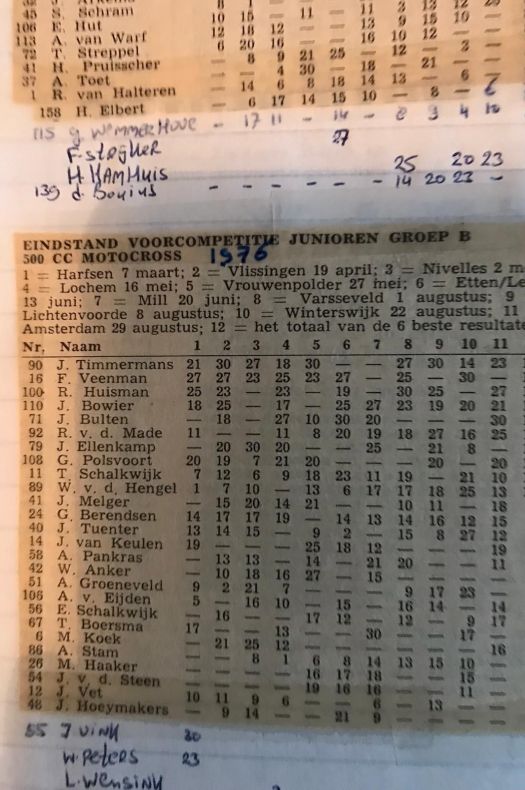 45 S. Schram
106 E. Hut 10 15 — 11 — 11 3 13 12
113 A. van Warf 12 18 12 — — — 13 9 15 10 —
72 T. Streppel 6 20 16 — — — 16 10 12 — —
41 H. Pruisscher — 8 9 21 25 — — 12 — 3 —
37 A. Toet — — 4 30 — — 18 — 21 — —
1 R. van Halteren — 14 6 8 18 14 13 — — 6 —
158 H. Elbert — 6 17 14 15 10 — — 8 — 6
115 g WEMMERHOVE — 17 11 — 14 — — 8 3 4 10
F. stegker 27
H. KAMHuis 25 20 23
139 d. Bouius — — — — — — — 14 20 23 —
EINDSTAND VOORCOMPETITIE JUNIOREN GROEP B
500 CC MOTOCROSS 1976
1 = Harfsen 7 maart; 2 = Vlissingen 19 april; 3 = Nivelles 2 m
4 = Lochem 16 mei; 5 = Vrouwenpolder 27 mei; 6 = Etten/Le
13 juni; 7 = Mill 20 juni; 8 = Varsseveld 1 augustus; 9
Lichtenvoorde 8 augustus; 10 = Winterswijk 22 augustus; 11
Amsterdam 29 augustus; 12 = het totaal van de 6 beste resultate
Nr. Naam 1 2 3 4 5 6 7 8 9 10 11
90 J. Timmermans 21 30 27 18 30 — — 27 30 14 23
16 F. Veenman 27 27 23 25 23 27 — 25 — 30 —
100 R. Huisman 25 23 — 23 — 19 — 30 25 — 27
110 J. Bowier 18 25 — 17 — 25 27 23 19 20 21
71 J. Bulten — 18 — 27 10 30 20 — — — 30
92 R. v. d. Made 11 — — 11 8 20 19 18 27 16 25
79 J. Ellenkamp — 20 30 20 — — 25 — 21 8 —
108 G. Polsvoort 20 19 7 21 20 — — — 20 — 20
11 T. Schalkwijk 7 12 6 9 18 23 11 19 — 21 10
89 W. v. d. Hengel 1 7 10 — 13 6 17 17 18 25 13
41 J. Melger — 15 20 14 21 — — 10 11 — 18
24 G. Berendsen 14 17 17 19 — 14 13 14 16 12 15
40 J. Tuenter 13 14 15 — 9 2 — 15 8 27 12
14 J. van Keulen 19 — — — 25 18 12 — — — 19
58 A. Pankras — 13 13 — 14 — 21 20 — — 11
42 W. Anker — 10 18 16 27 — 15 — — — —
51 A. Groeneveld 9 2 21 7 — — — 9 17 23 —
106 A. v. Eijden 5 — 16 10 — 15 — 16 14 — 14
56 E. Schalkwijk — 16 — — 17 12 — 12 — 9 17
67 T. Boersma 17 — — 13 — — 30 — — 17 —
6 M. Koek — 21 25 12 — — — — — — 16
86 A. Stam — — 8 1 6 8 14 13 15 10 —
26 M. Haaker — — — — 16 17 18 — — 15 —
54 J. v. d. Steen — — — — 19 16 16 — — 11 —
12 J. Vet 10 11 9 6 — — 6 — 13 — —
48 J. Hoeymakers — 9 14 — — 21 9 — — — —
55 J VINK 30
W. Peters 23
L. Wensink